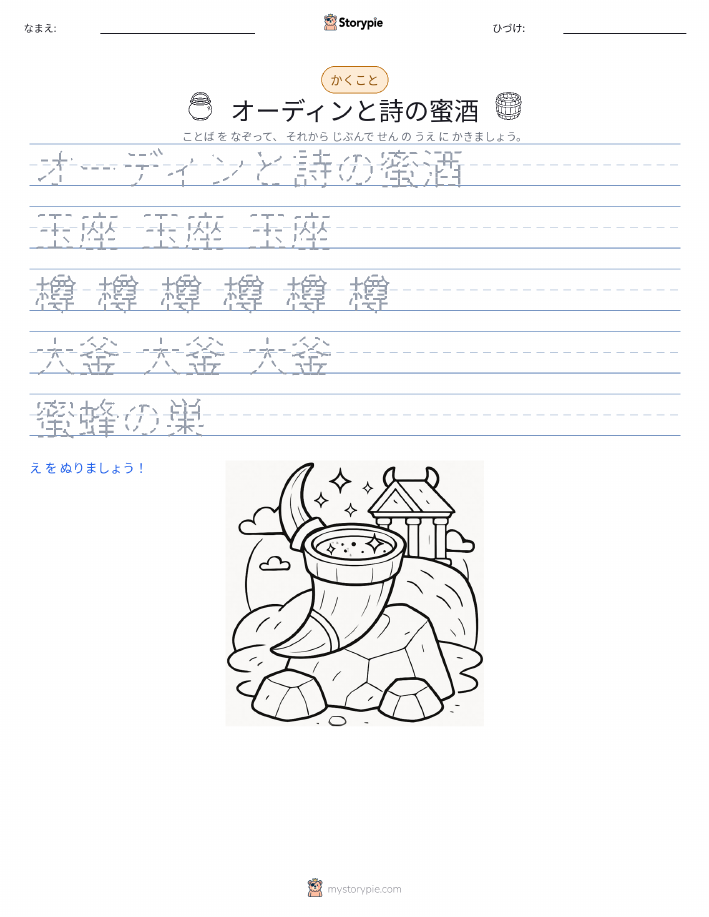 なまえ:
Storypie
ひづけ:
かくこと
オーディンと詩の蜜酒
ことば を なぞって、 それから じぶんで せん の うえ に かきましょう。
オーディンと詩の蜜酒
玉座 玉座 玉座
樽 樽 樽 樽 樽 樽
大釜 大釜 大釜
蜜蜂の巣
え を ぬりましょう！
mystorypie.com